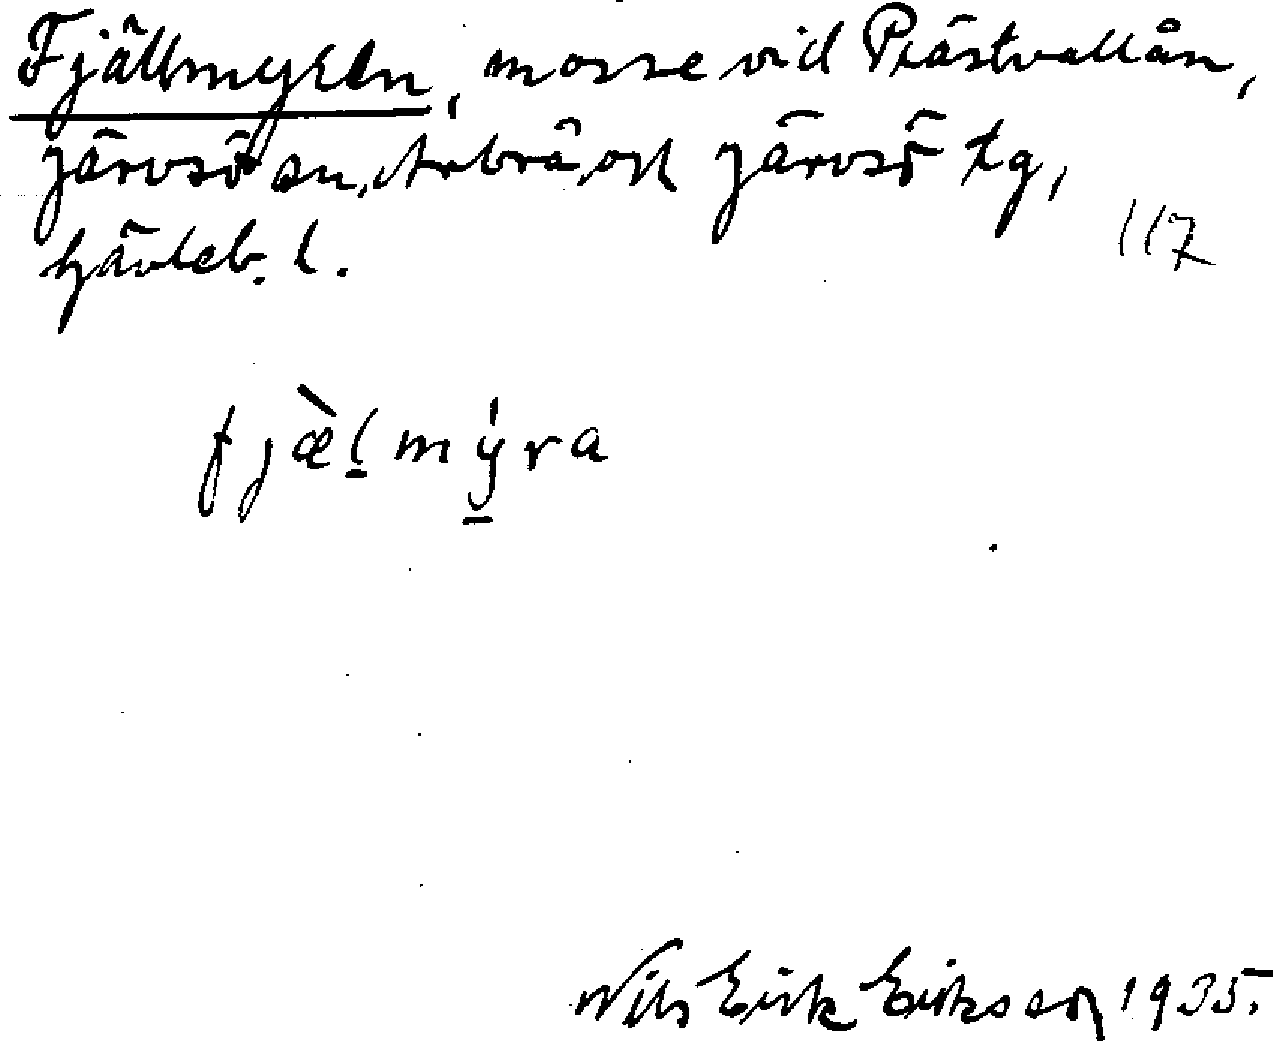 Fjällmyran, mosse vid Prästvallån,
Järvsö sn, Arbrå och Järvsö tg,
Gävleb. l.
117
fjæ̀l̠mẏ̠ra
Nils Erik Eriksson 1935.